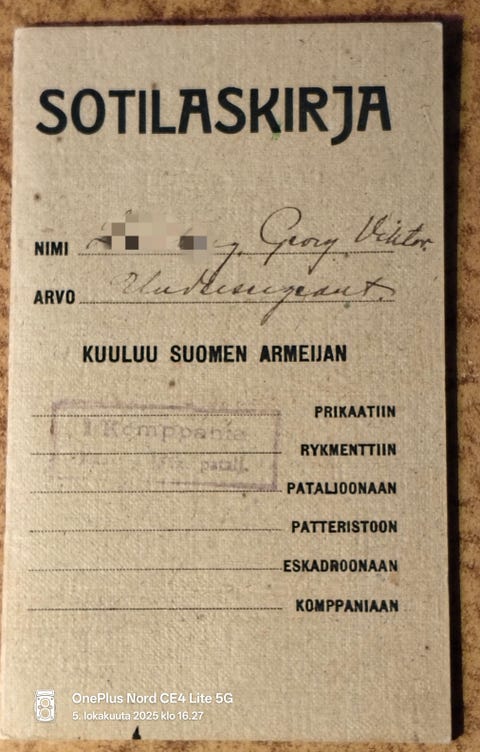 SOTILASKIRJA
NIMI Georg Viktor.
ARVO Undersergeant.
KUULUU SUOMEN ARMEIJAN
PRIKAATIIN
I Komppania
RYKMENTTIIN
patalj.
PATALJOONAAN
PATTERISTOON
ESKADROONAAN
KOMPPANIAAN
OnePlus Nord CE4 Lite 5G
5. lokakuuta 2025 klo 16.27